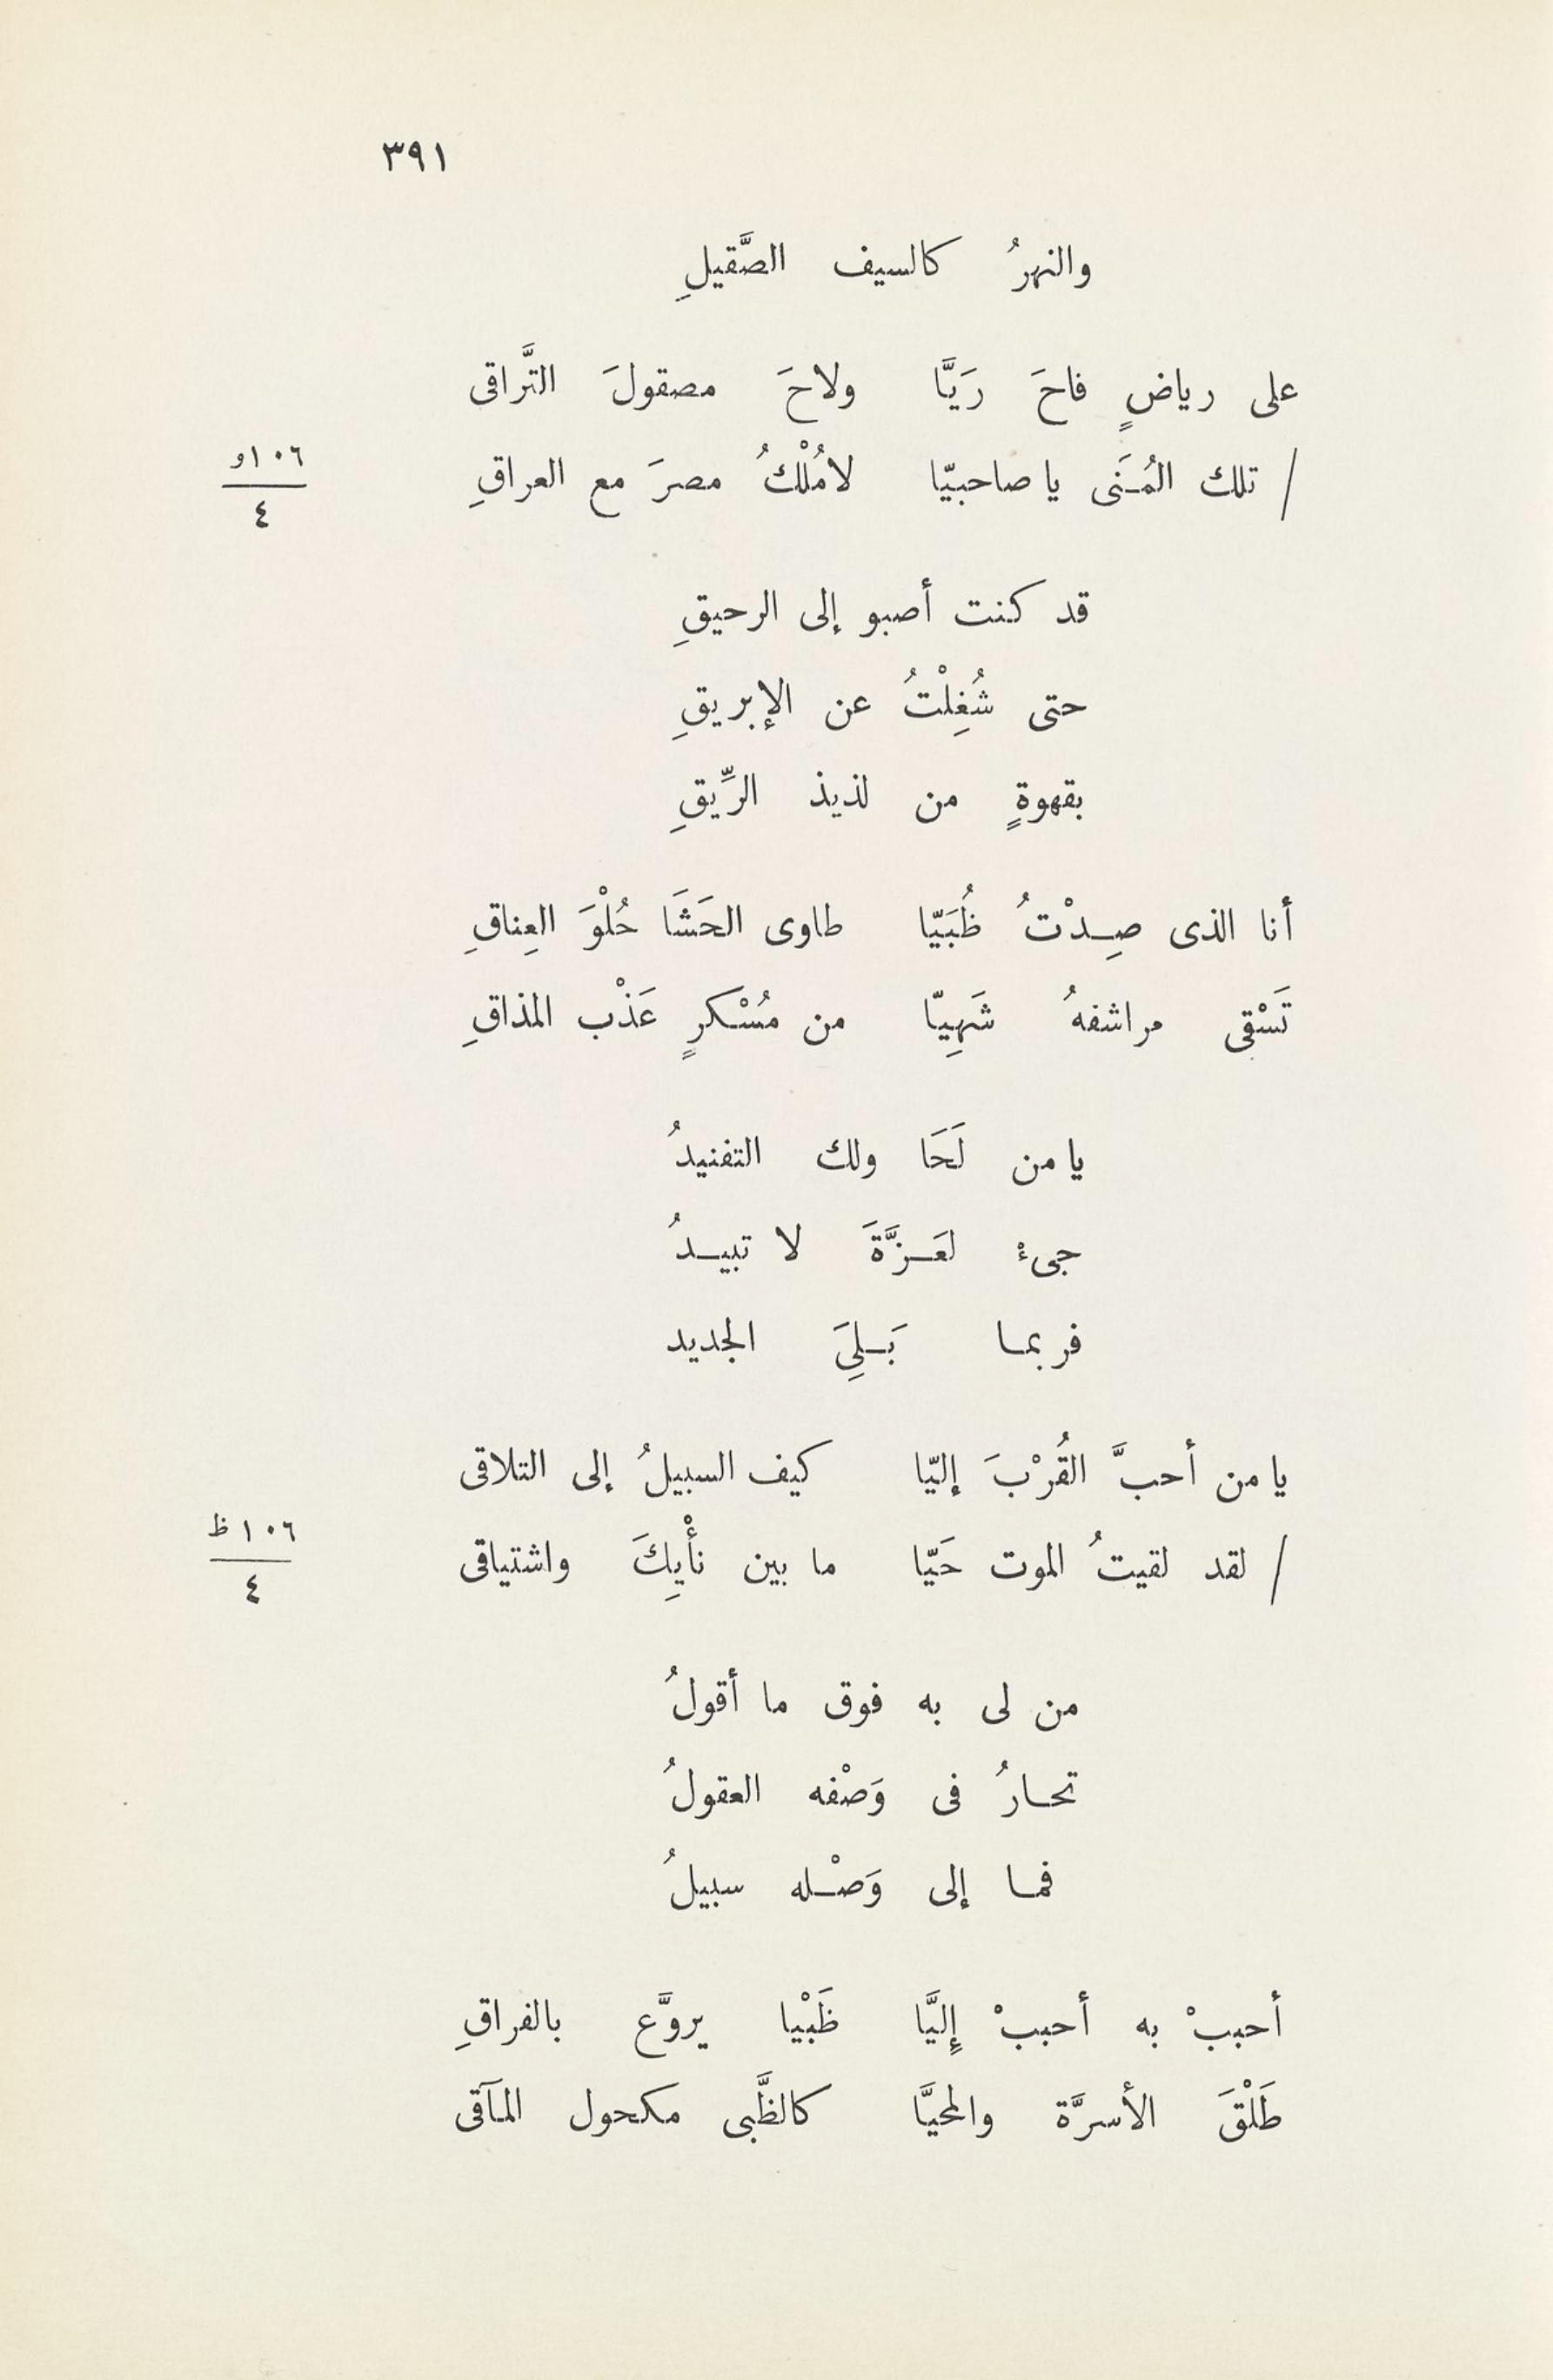 ٣٩١
والنهرُ كالسيف الصَّقيلِ
على رياضٍ فاحَ رَيَّا ولاحَ مصقولَ التَّراقى
/ تلك المُنَى يا صاحبيّا لا مُلْكُ مصرَ مع العراقِ
١٠٦و
٤
قد كنت أصبو إلى الرحيقِ
حتى شُغِلْتُ عن الإبريقِ
بقهوةٍ من لذيذ الرِّيقِ
أنا الذى صِدْتُ ظُبَيّا طاوى الحَشَا حُلْوَ العِناقِ
تَسْقى مراشفهُ شَهِيّا من مُسْكرٍ عَذْب المذاقِ
يا من لَحَا ولك التفنيدُ
جىءْ لعَزَّةَ لا تبيدُ
فربما بَلِىَ الجديد
يا من أحبَّ القُرْبَ إليّا كيف السبيلُ إلى التلاقى
/ لقد لقيتُ الموت حَيّا ما بين نأْيِكَ واشتياقى
١٠٦ظ
٤
من لى به فوق ما أقولُ
تحارُ فى وَصْفه العقولُ
فما إلى وَصْله سبيلُ
أحببْ به أحببْ إِليَّا ظَبْيا يروَّع بالفراقِ
طَلْقَ الأسرَّة والمحيَّا كالظَّبى مكحول المآقى